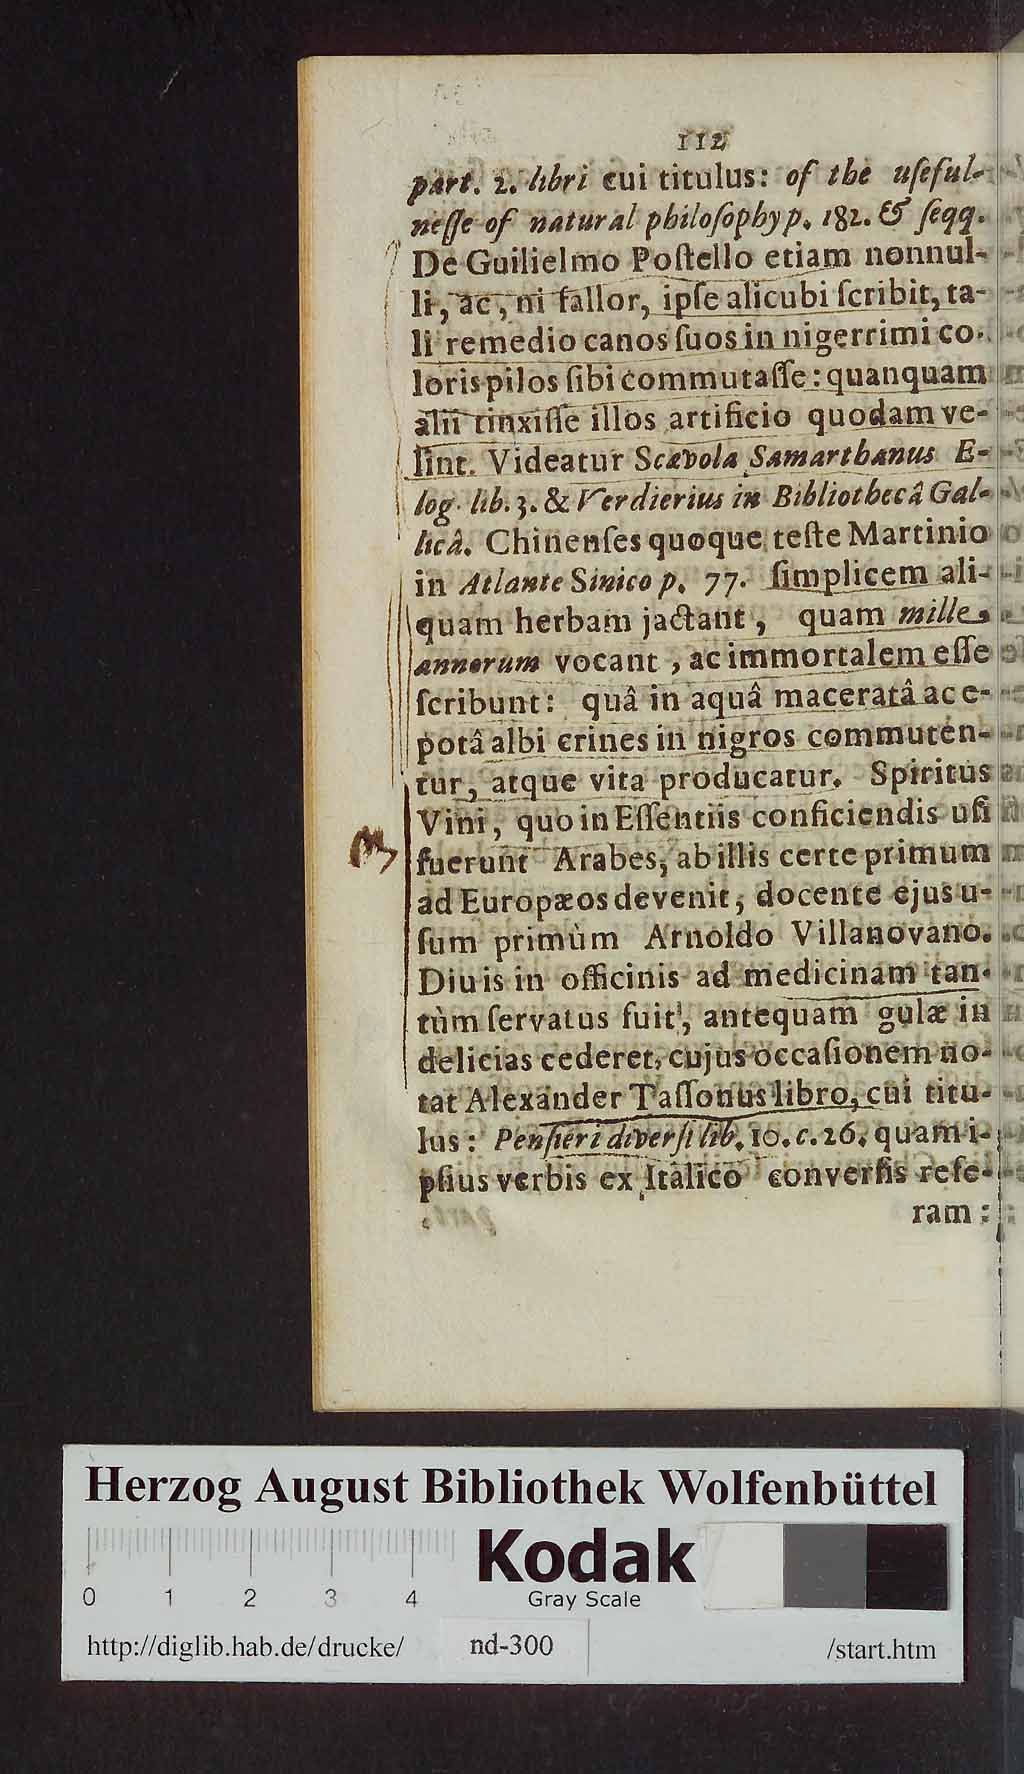 112
part. 2. libri cui titulus: of the uſeful-
neſſe of natural philoſophy p. 182. & ſeqq.
De Guilielmo Poſtello etiam nonnul-
li, ac, ni fallor, ipſe alicubi ſcribit, ta-
li remedio canos ſuos in nigerrimi co-
loris pilos ſibi commutaſſe: quanquam
alii tinxiſſe illos artificio quodam ve-
lint. Videatur Scævola Samarthanus E-
log. lib. 3. & Verdierius in Bibliothecâ Gal-
licâ. Chinenſes quoque teſte Martinio
in Atlante Sinico p. 77. ſimplicem ali-
quam herbam jactant, quam mille
annorum vocant, ac immortalem eſſe
ſcribunt: quâ in aquâ maceratâ ac e-
potâ albi crines in nigros commuten-
tur, atque vita producatur. Spiritus
Vini, quo in Eſſentiis conficiendis uſi
fuerunt Arabes, ab illis certe primum
ad Europæos devenit, docente ejus u-
ſum primùm Arnoldo Villanovano.
Diu is in officinis ad medicinam tan-
tùm ſervatus fuit, antequam gulæ in
delicias cederet, cujus occaſionem no-
tat Alexander Taſſonus libro, cui titu-
lus: Penſieri diverſi lib. 10. c. 26. quam i-
pſius verbis ex Italico converſis refe-
ram:
Herzog August Bibliothek Wolfenbüttel
Kodak
Gray Scale
0 1 2 3 4
http://diglib.hab.de/drucke/ nd-300 /start.htm